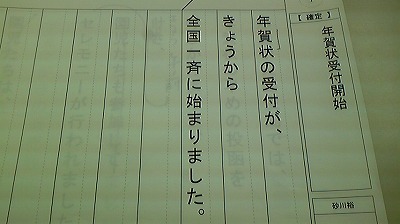 ［確定］
年賀状受付開始
砂川裕
年賀状の受付が、
きょうから
全国一斉に始まりました。